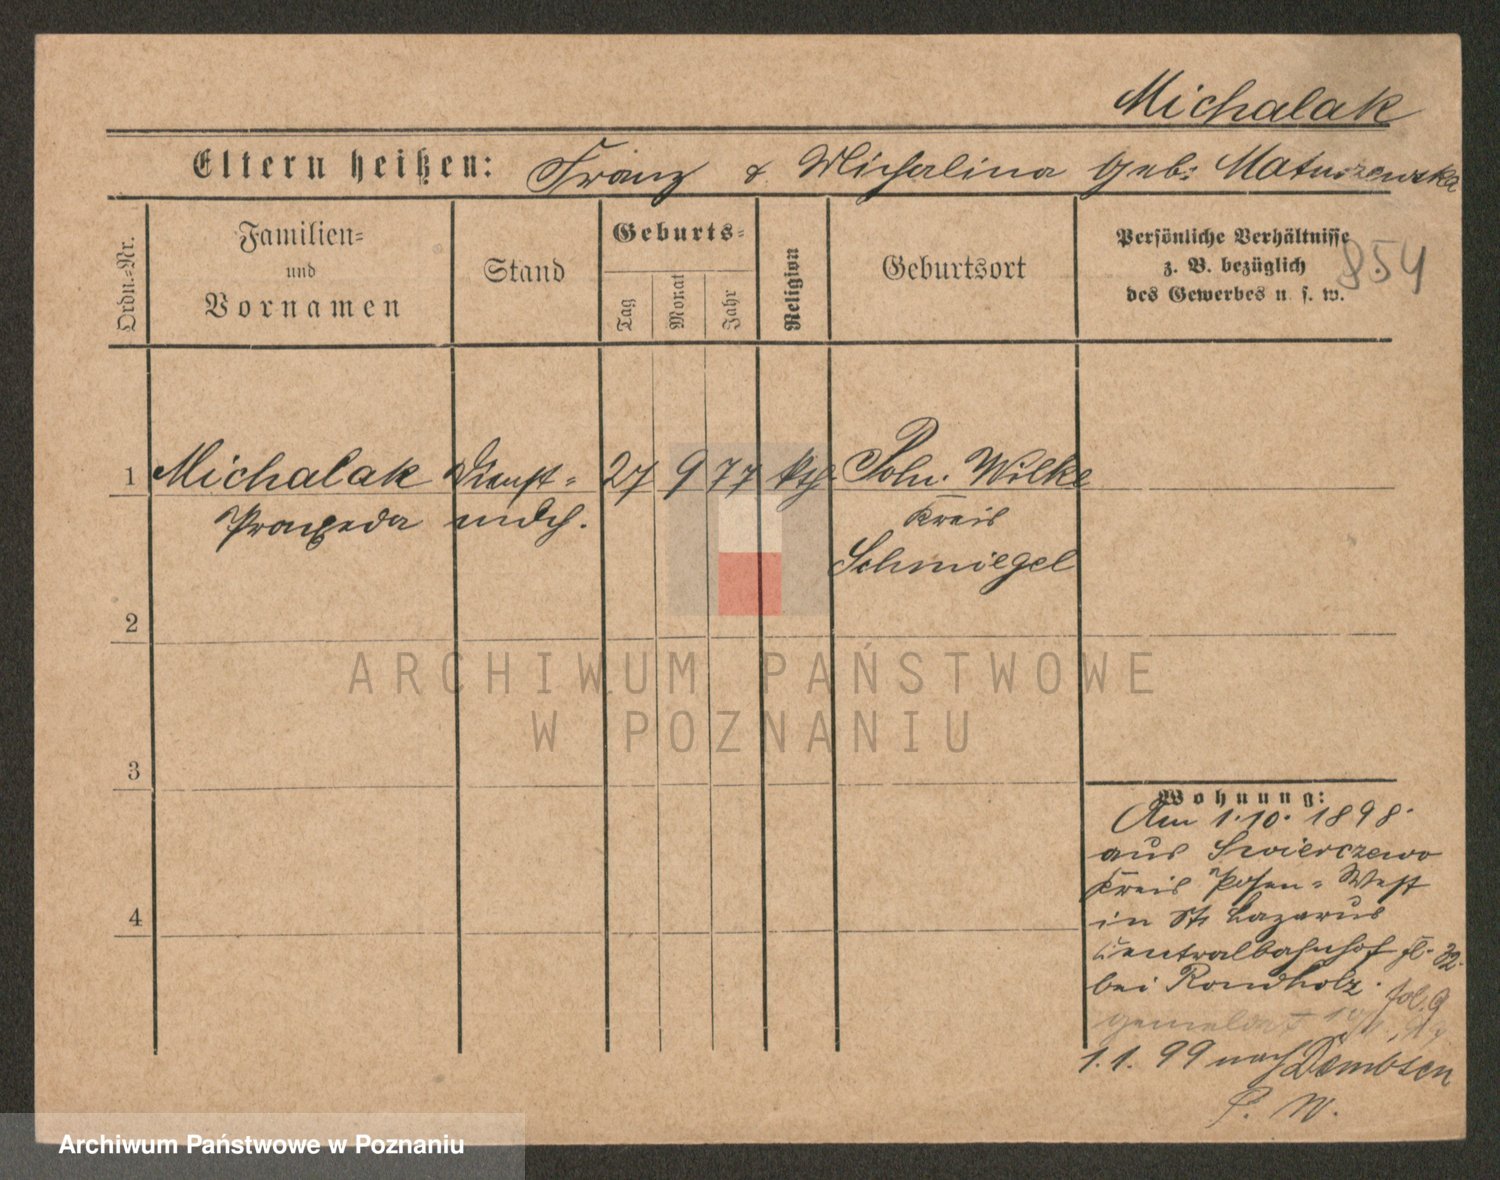 Michalak
Eltern heißen: Franz & Michalina geb: Matuszewska
Ordn.=Nr.
Familien=
und
Vornamen
Stand
Geburts=
Tag
Monat
Jahr
Religion
Geburtsort
Persönliche Verhältnisse
z. B. bezüglich
des Gewerbes u. s. w.
854
1 Michalak Dienst= 27 9 77 kth. Poln. Wilke
Praxeda mdch. Kreis
Schmiegel
2
ARCHIWUM PAŃSTWOWE
W POZNANIU
3
Wohnung:
Am 1.10. 1898.
aus Swierczewo
Kreis Posen=West
in St. Lazarus
Centralbahnhof 32.
bei Rondholz. fol. 9
4
gemeldet
1.1.99 nach Dembsen
P. W.
Archiwum Państwowe w Poznaniu